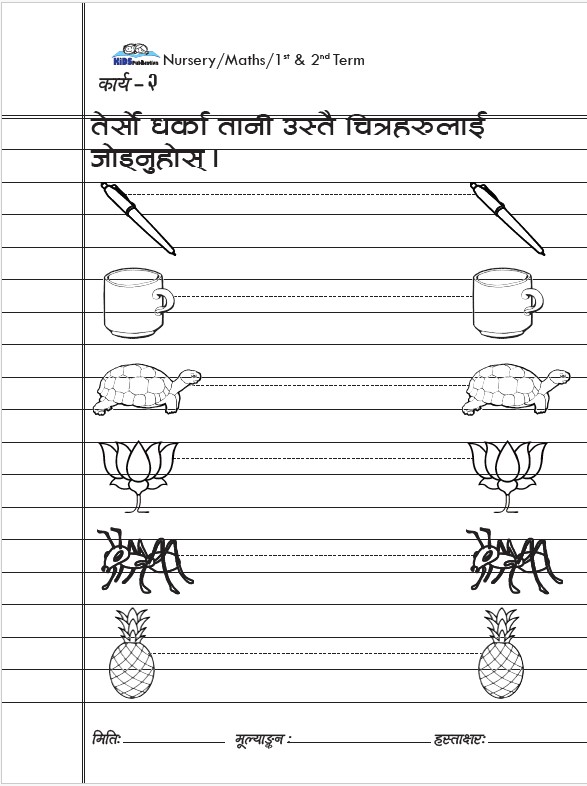 KiDS Publication Nursery/Maths/1st & 2nd Term
कार्य – २
तेर्सो धर्का तानी उस्तै चित्रहरुलाई
जोड्नुहोस् ।
मितिः मूल्याङ्कन : हस्ताक्षरः